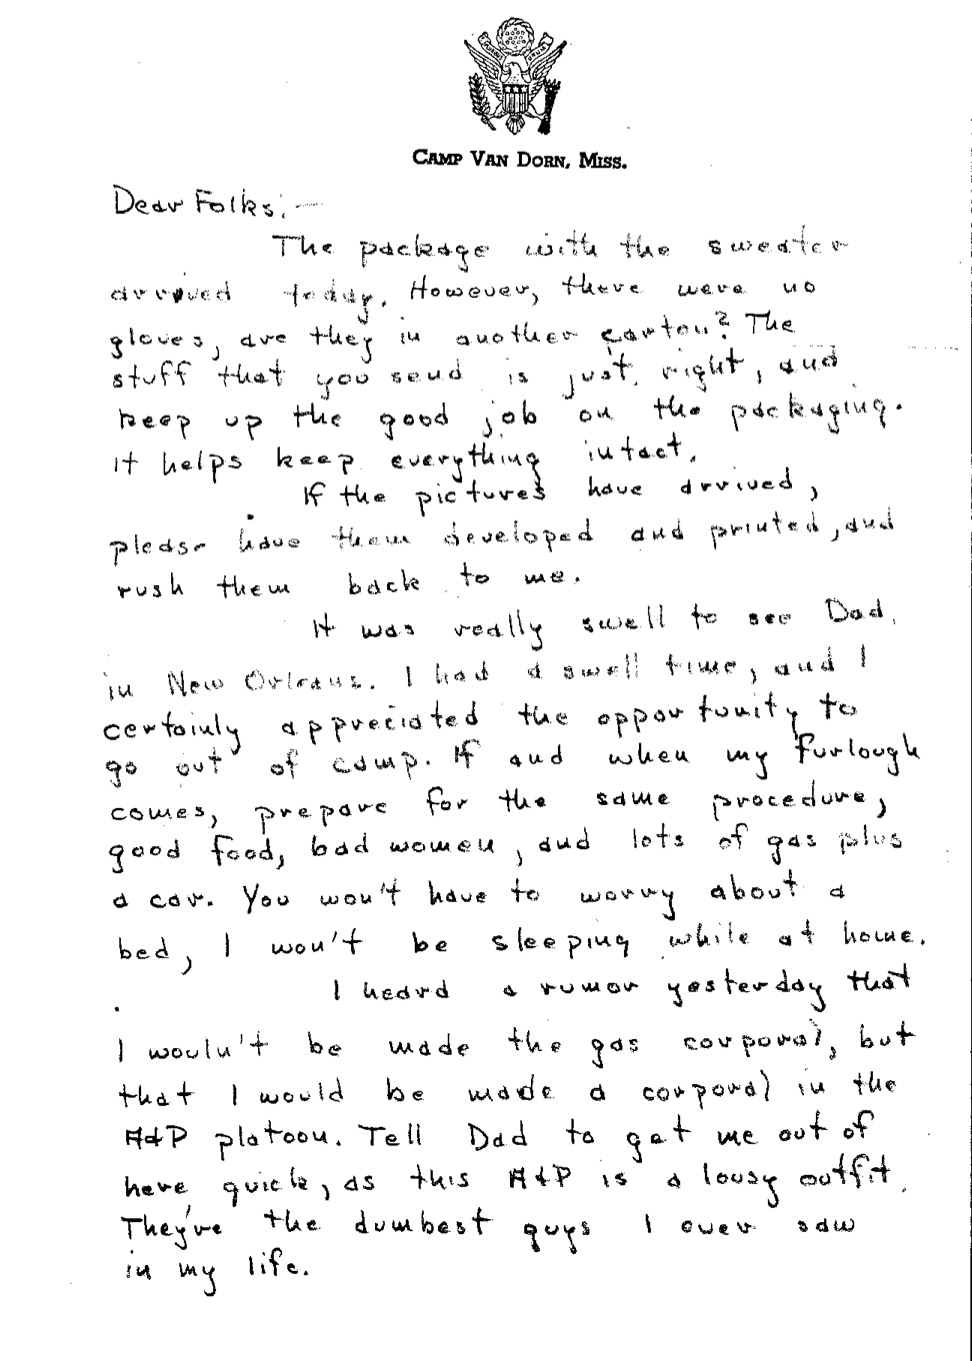 CAMP VAN DORN, MISS.
Dear Folks:—
The package with the sweater
arrived today. However, there were no
gloves, are they in another carton? The
stuff that you send is just right, and
keep up the good job on the packaging.
It helps keep everything intact.
If the pictures have arrived,
please have them developed and printed, and
rush them back to me.
It was really swell to see Dad
in New Orleans. I had a swell time, and I
certainly appreciated the opportunity to
go out of camp. If and when my furlough
comes, prepare for the same procedure,
good food, bad women, and lots of gas plus
a car. You won't have to worry about a
bed, I won't be sleeping while at home.
I heard a rumor yesterday that
I wouln't be made the gas corporal, but
that I would be made a corporal in the
A&P platoon. Tell Dad to get me out of
here quick, as this A&P is a lousy outfit.
They're the dumbest guys I ever saw
in my life.